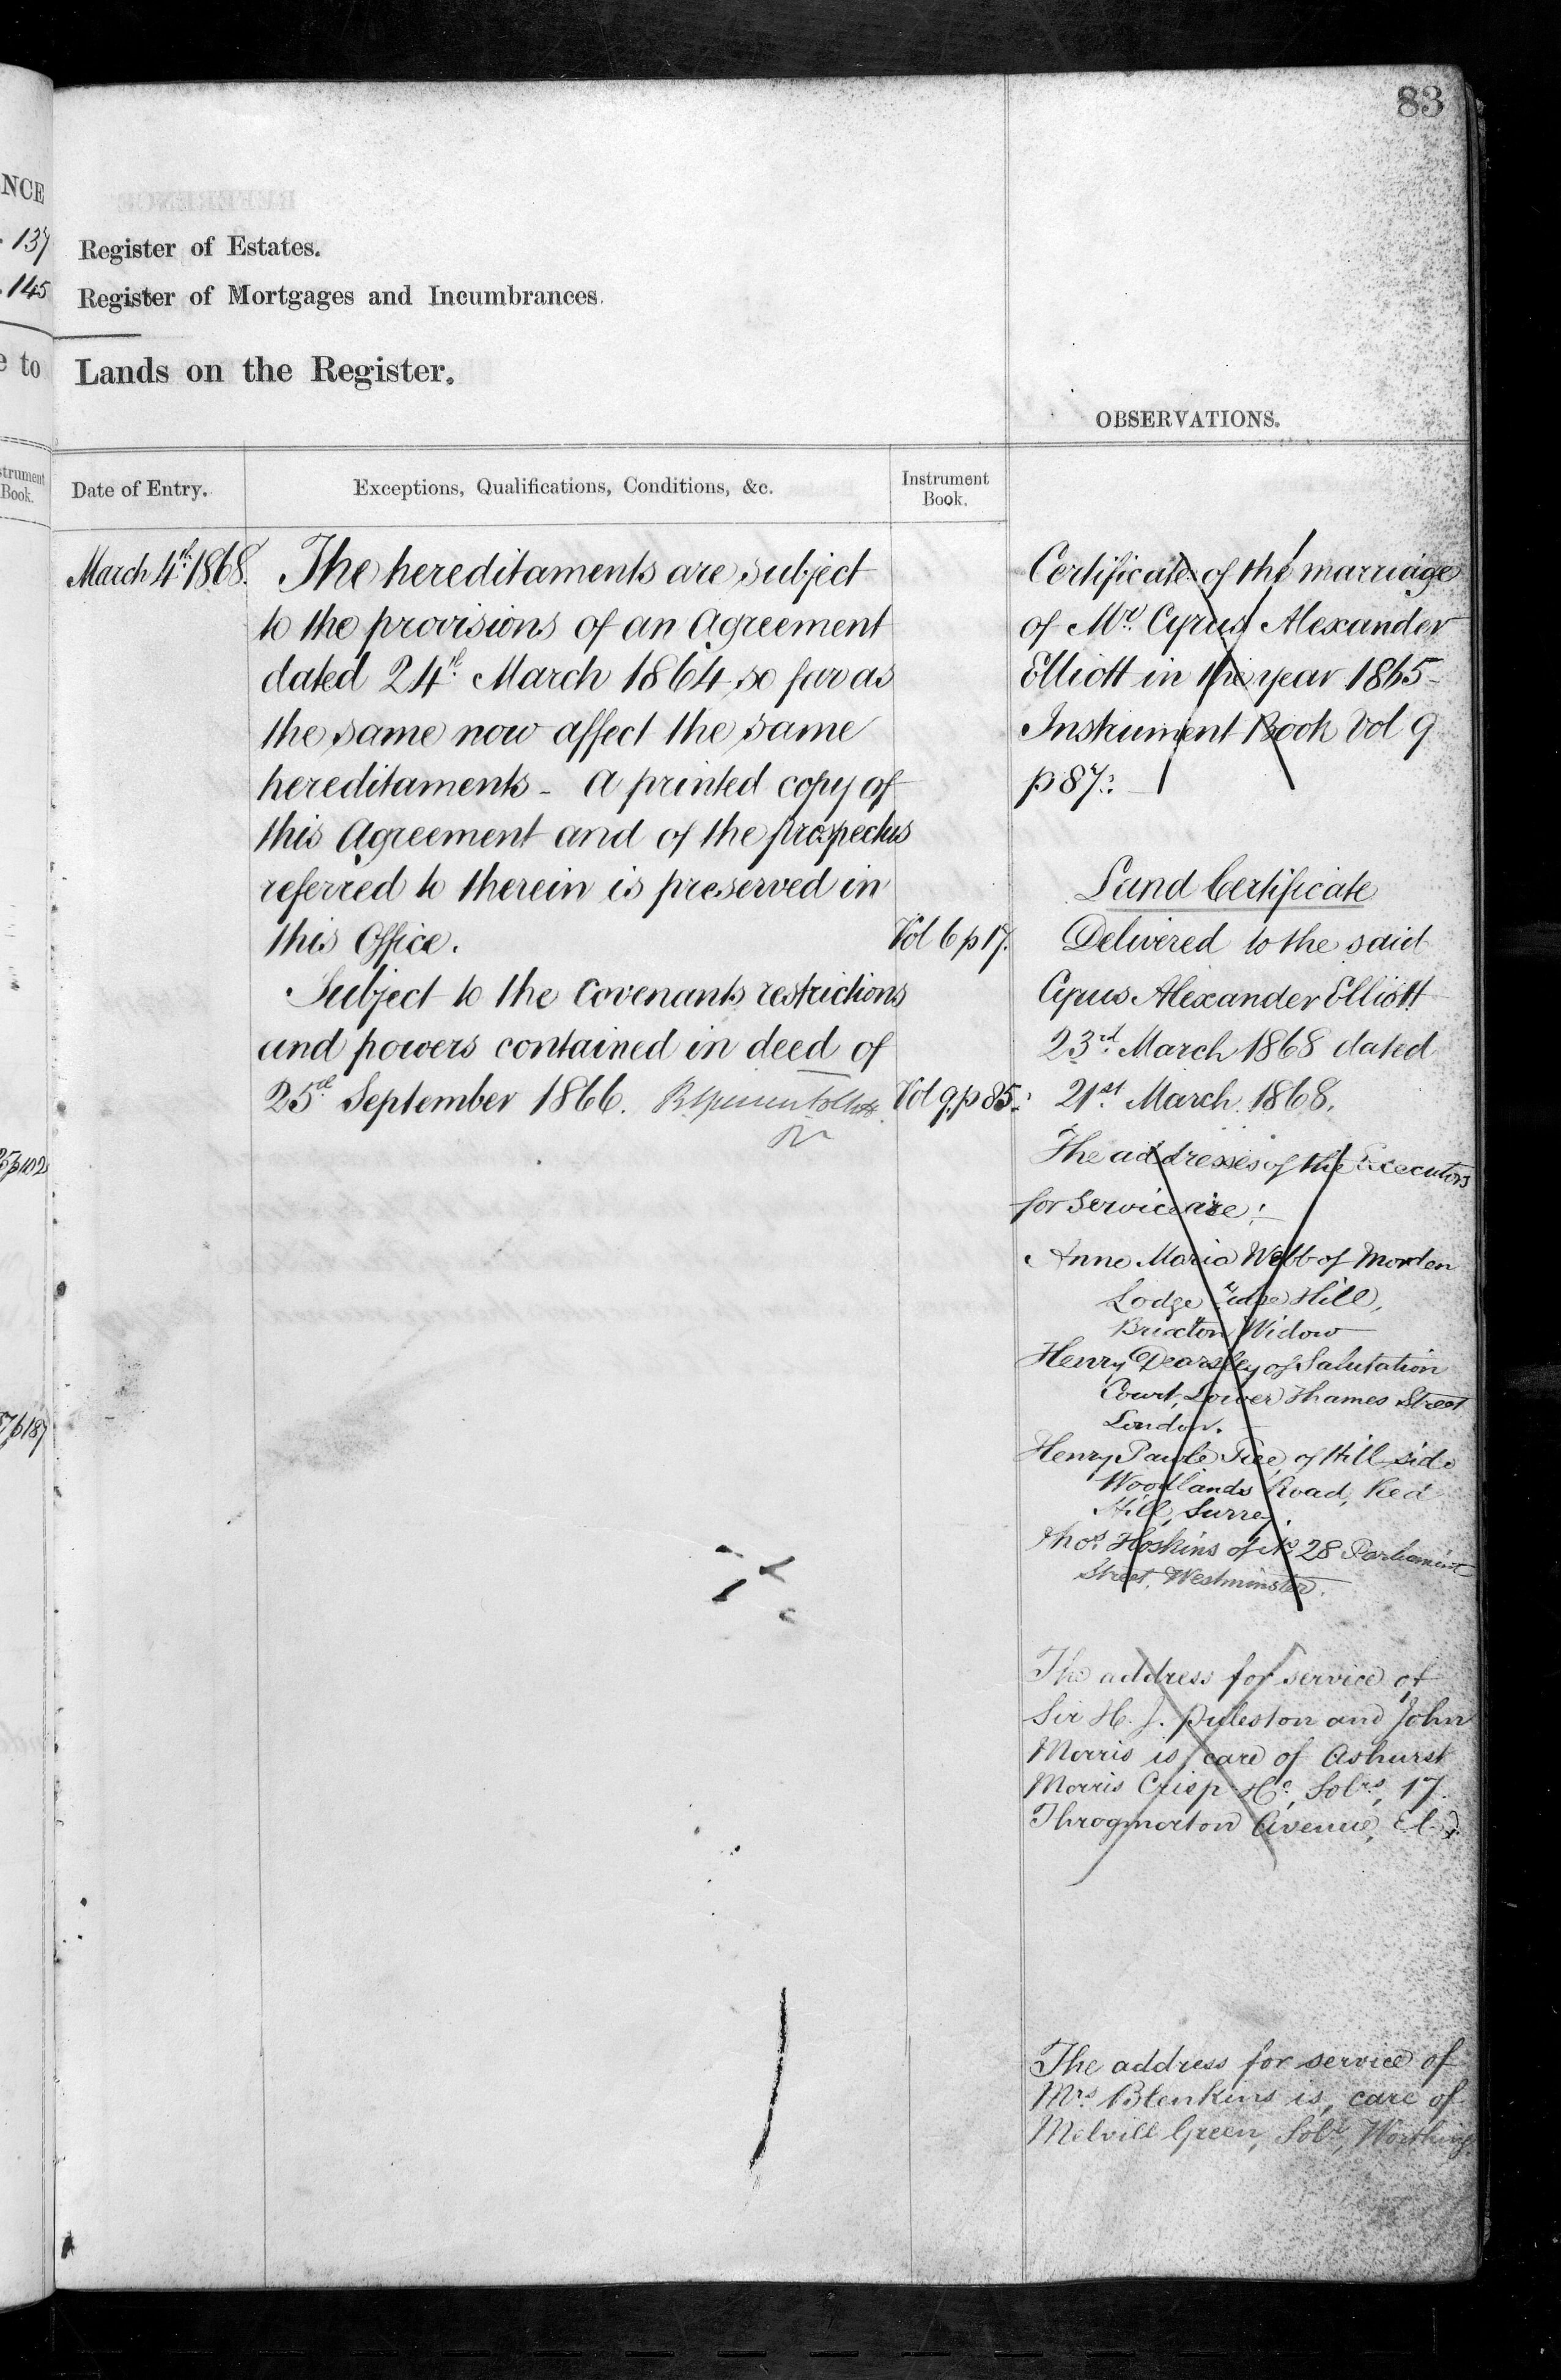 83
NCE
137
145
e to
strument
Book.
Register of Estates.
Register of Mortgages and Incumbrances.
Lands on the Register.
OBSERVATIONS.
Date of Entry.
Exceptions, Qualifications, Conditions, &c.
Instrument
Book.
March 4th 1868.
The hereditaments are subject
to the provisions of an Agreement
dated 24th March 1864 so far as
the same now affect the same
hereditaments - A printed copy of
this Agreement and of the prospectus
referred to therein is preserved in
this Office.
Vol 6 p 17.
Subject to the Covenants restrictions
and powers contained in deed of
25th September 1866.
Vol 9. p 85.
Certificate of the marriage
of Mr. Cyrus Alexander
Elliott in the year 1865-
Instrument Book Vol 9
p 87.
Land Certificate
Delivered to the said
Cyrus Alexander Elliott
23rd March 1868 dated
21st March 1868.
The addresses of the Executors
for Service are:
Anne Maria Webb of Morden
Lodge Hill,
Brixton Widow
Henry Dearsley of Salutation
Court, Lower Thames Street
London.
Henry of Hill side
Woodlands Road, Red
Hill, Surrey.
Thos. Hoskins of No. 28 Parliament
Street, Westminster.
The address for service of
Sir H. J. Puleston and John
Morris is care of Ashurst
Morris Crisp & Co, Solrs, 17.
Throgmorton Avenue, E.C.
The address for service of
Mrs. Blenkins is, care of
Melvill Green, Solr, Worthing.